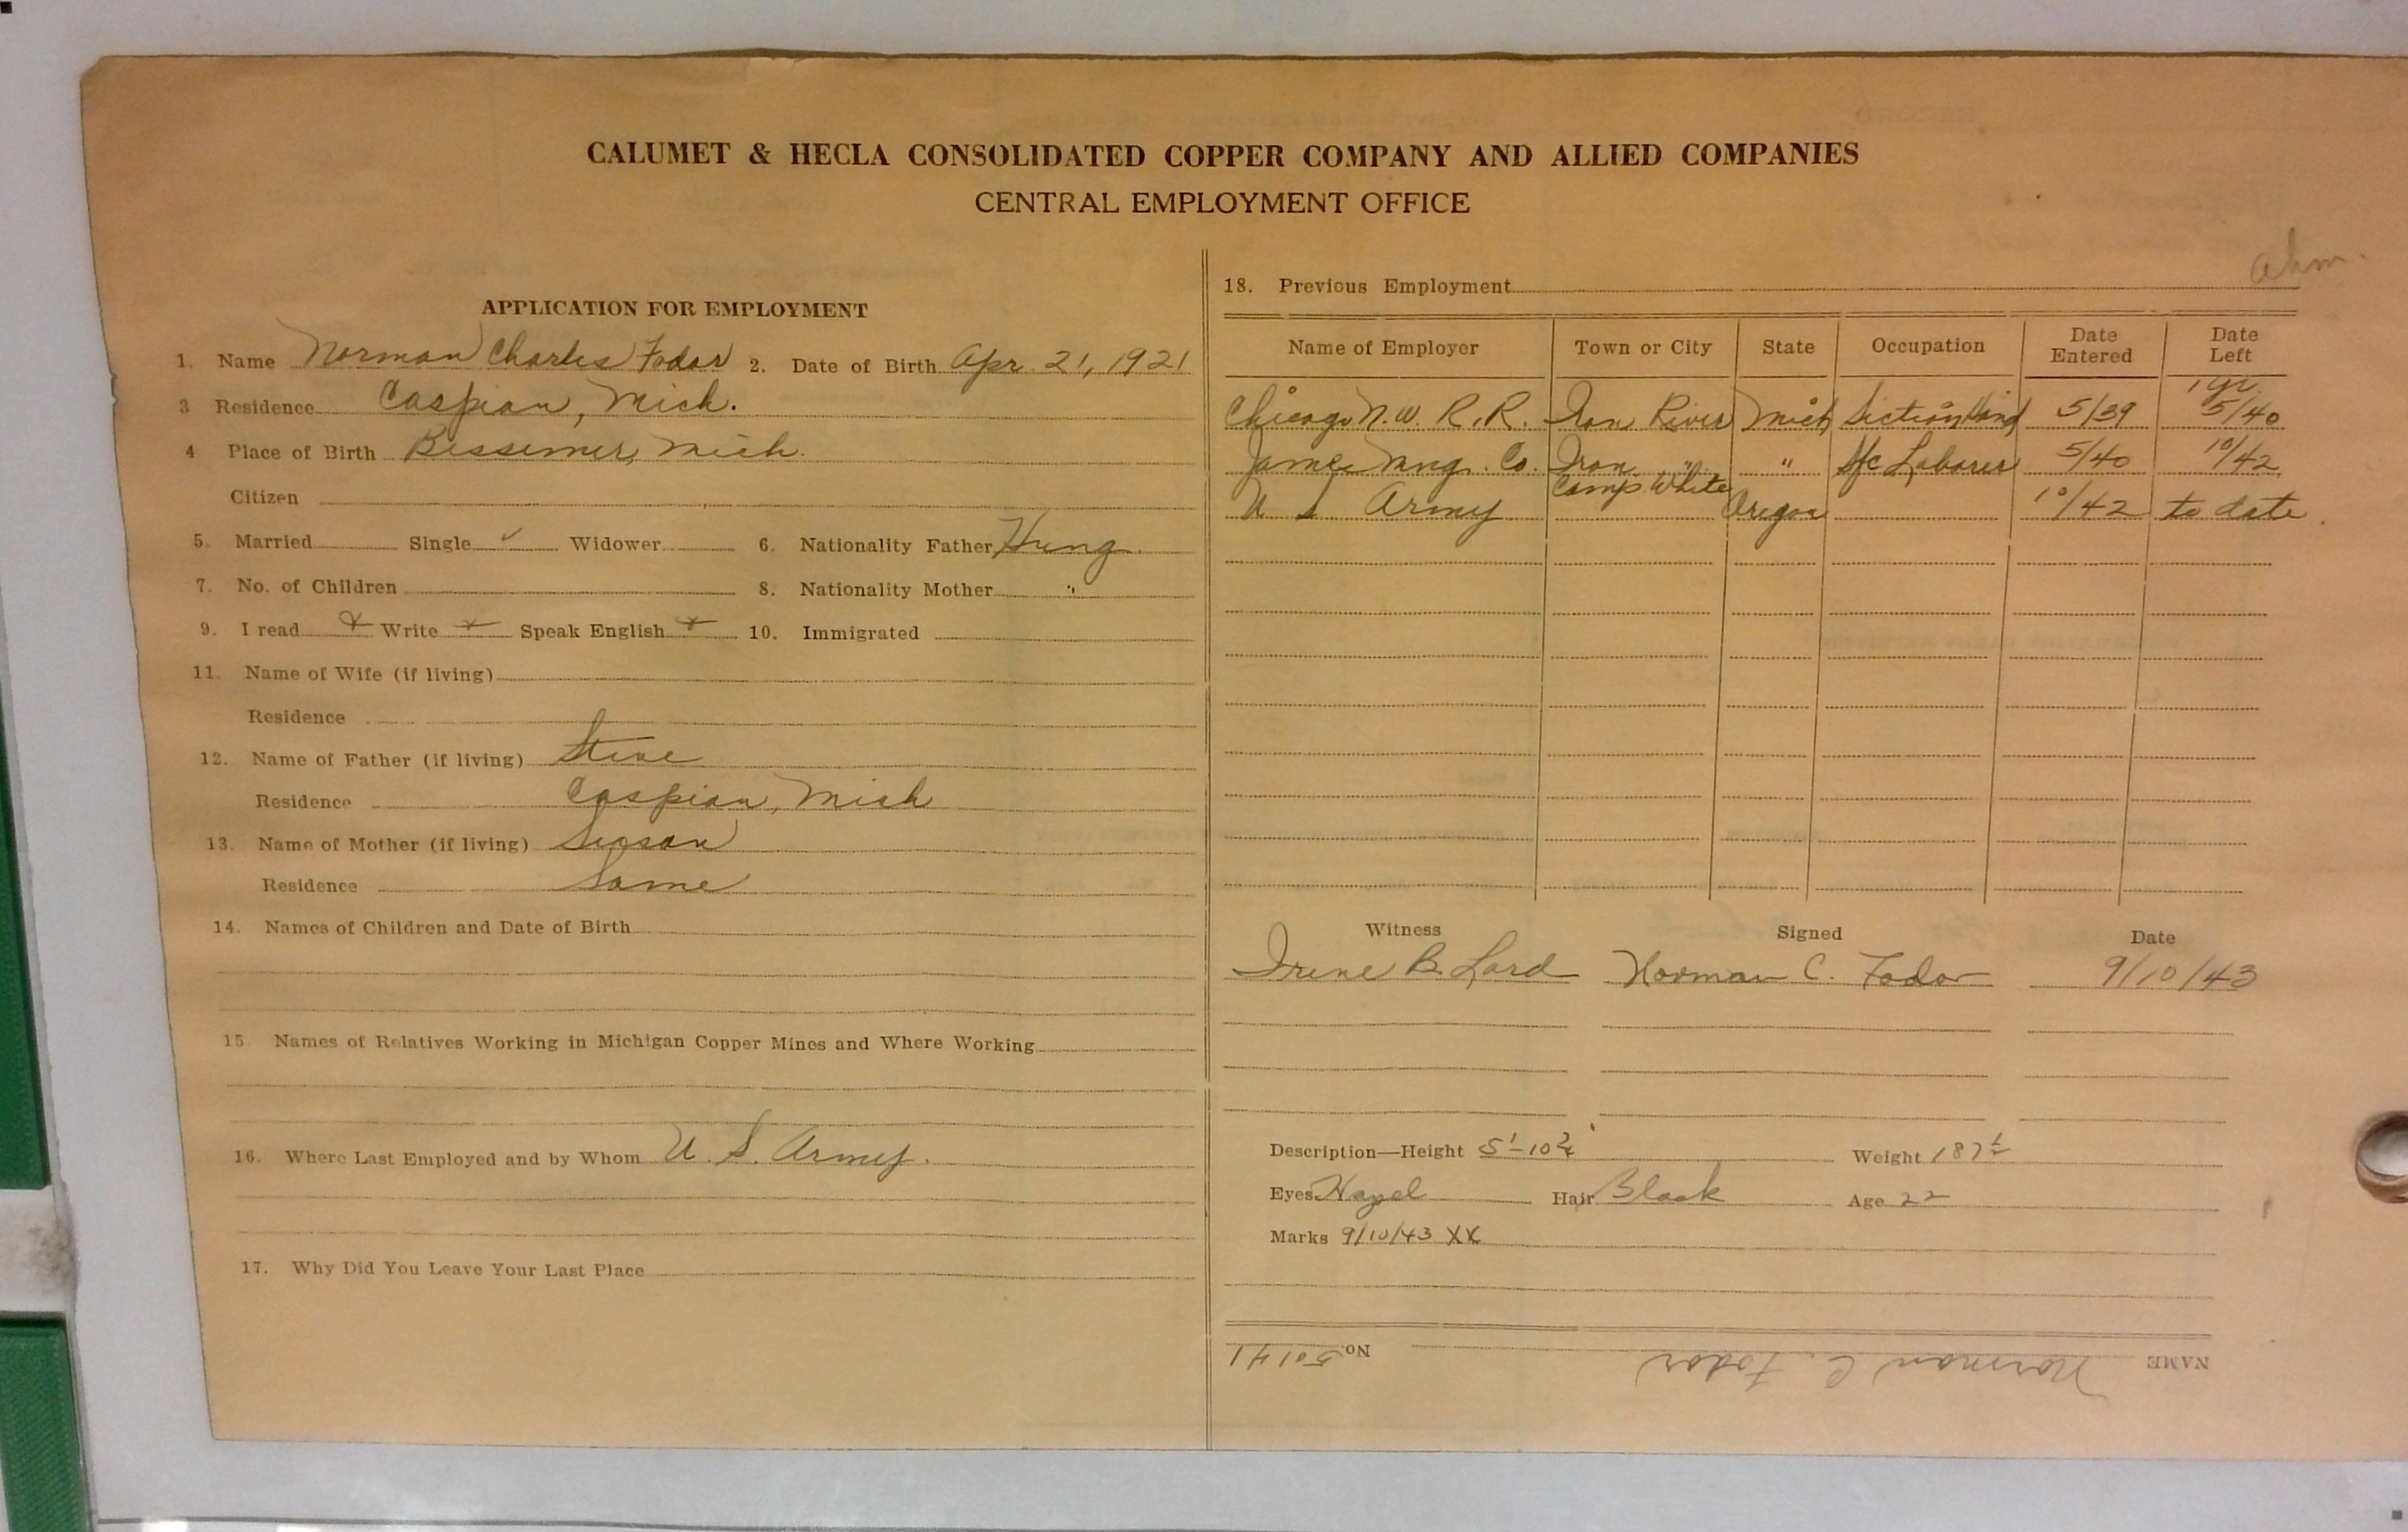 CALUMET & HECLA CONSOLIDATED COPPER COMPANY AND ALLIED COMPANIES
CENTRAL EMPLOYMENT OFFICE
APPLICATION FOR EMPLOYMENT
1. Name Norman Charles Fodor 2. Date of Birth Apr. 21, 1921
3 Residence Caspian, Mich.
4 Place of Birth Bessemer, Mich.
Citizen
5. Married Single ✓ Widower 6. Nationality Father Hung.
7. No. of Children 8. Nationality Mother "
9. I read x Write x Speak English x 10. Immigrated
11. Name of Wife (if living)
Residence
12. Name of Father (if living) Steve
Residence Caspian, Mich
13. Name of Mother (if living) Susan
Residence Same
14. Names of Children and Date of Birth
15 Names of Relatives Working in Michigan Copper Mines and Where Working
16. Where Last Employed and by Whom U. S. Army.
17. Why Did You Leave Your Last Place
18. Previous Employment
Name of Employer Town or City State Occupation Date Entered Date Left
1 yr.
Chicago N.W. R.R. Iron River Mich Section Hand 5/39 5/40
James Mng. Co. Iron " " Sfc Laborer 5/40 10/42
Camp White
U S Army Oregon 10/42 to date.
Witness Signed Date
Irene B. Lord Norman C. Fodor 9/10/43
Description—Height 5'-10¾" Weight 187½
Eyes Hazel Hair Black Age 22
Marks 9/10/43 XX
NAME Norman C. Fodor No. 50141